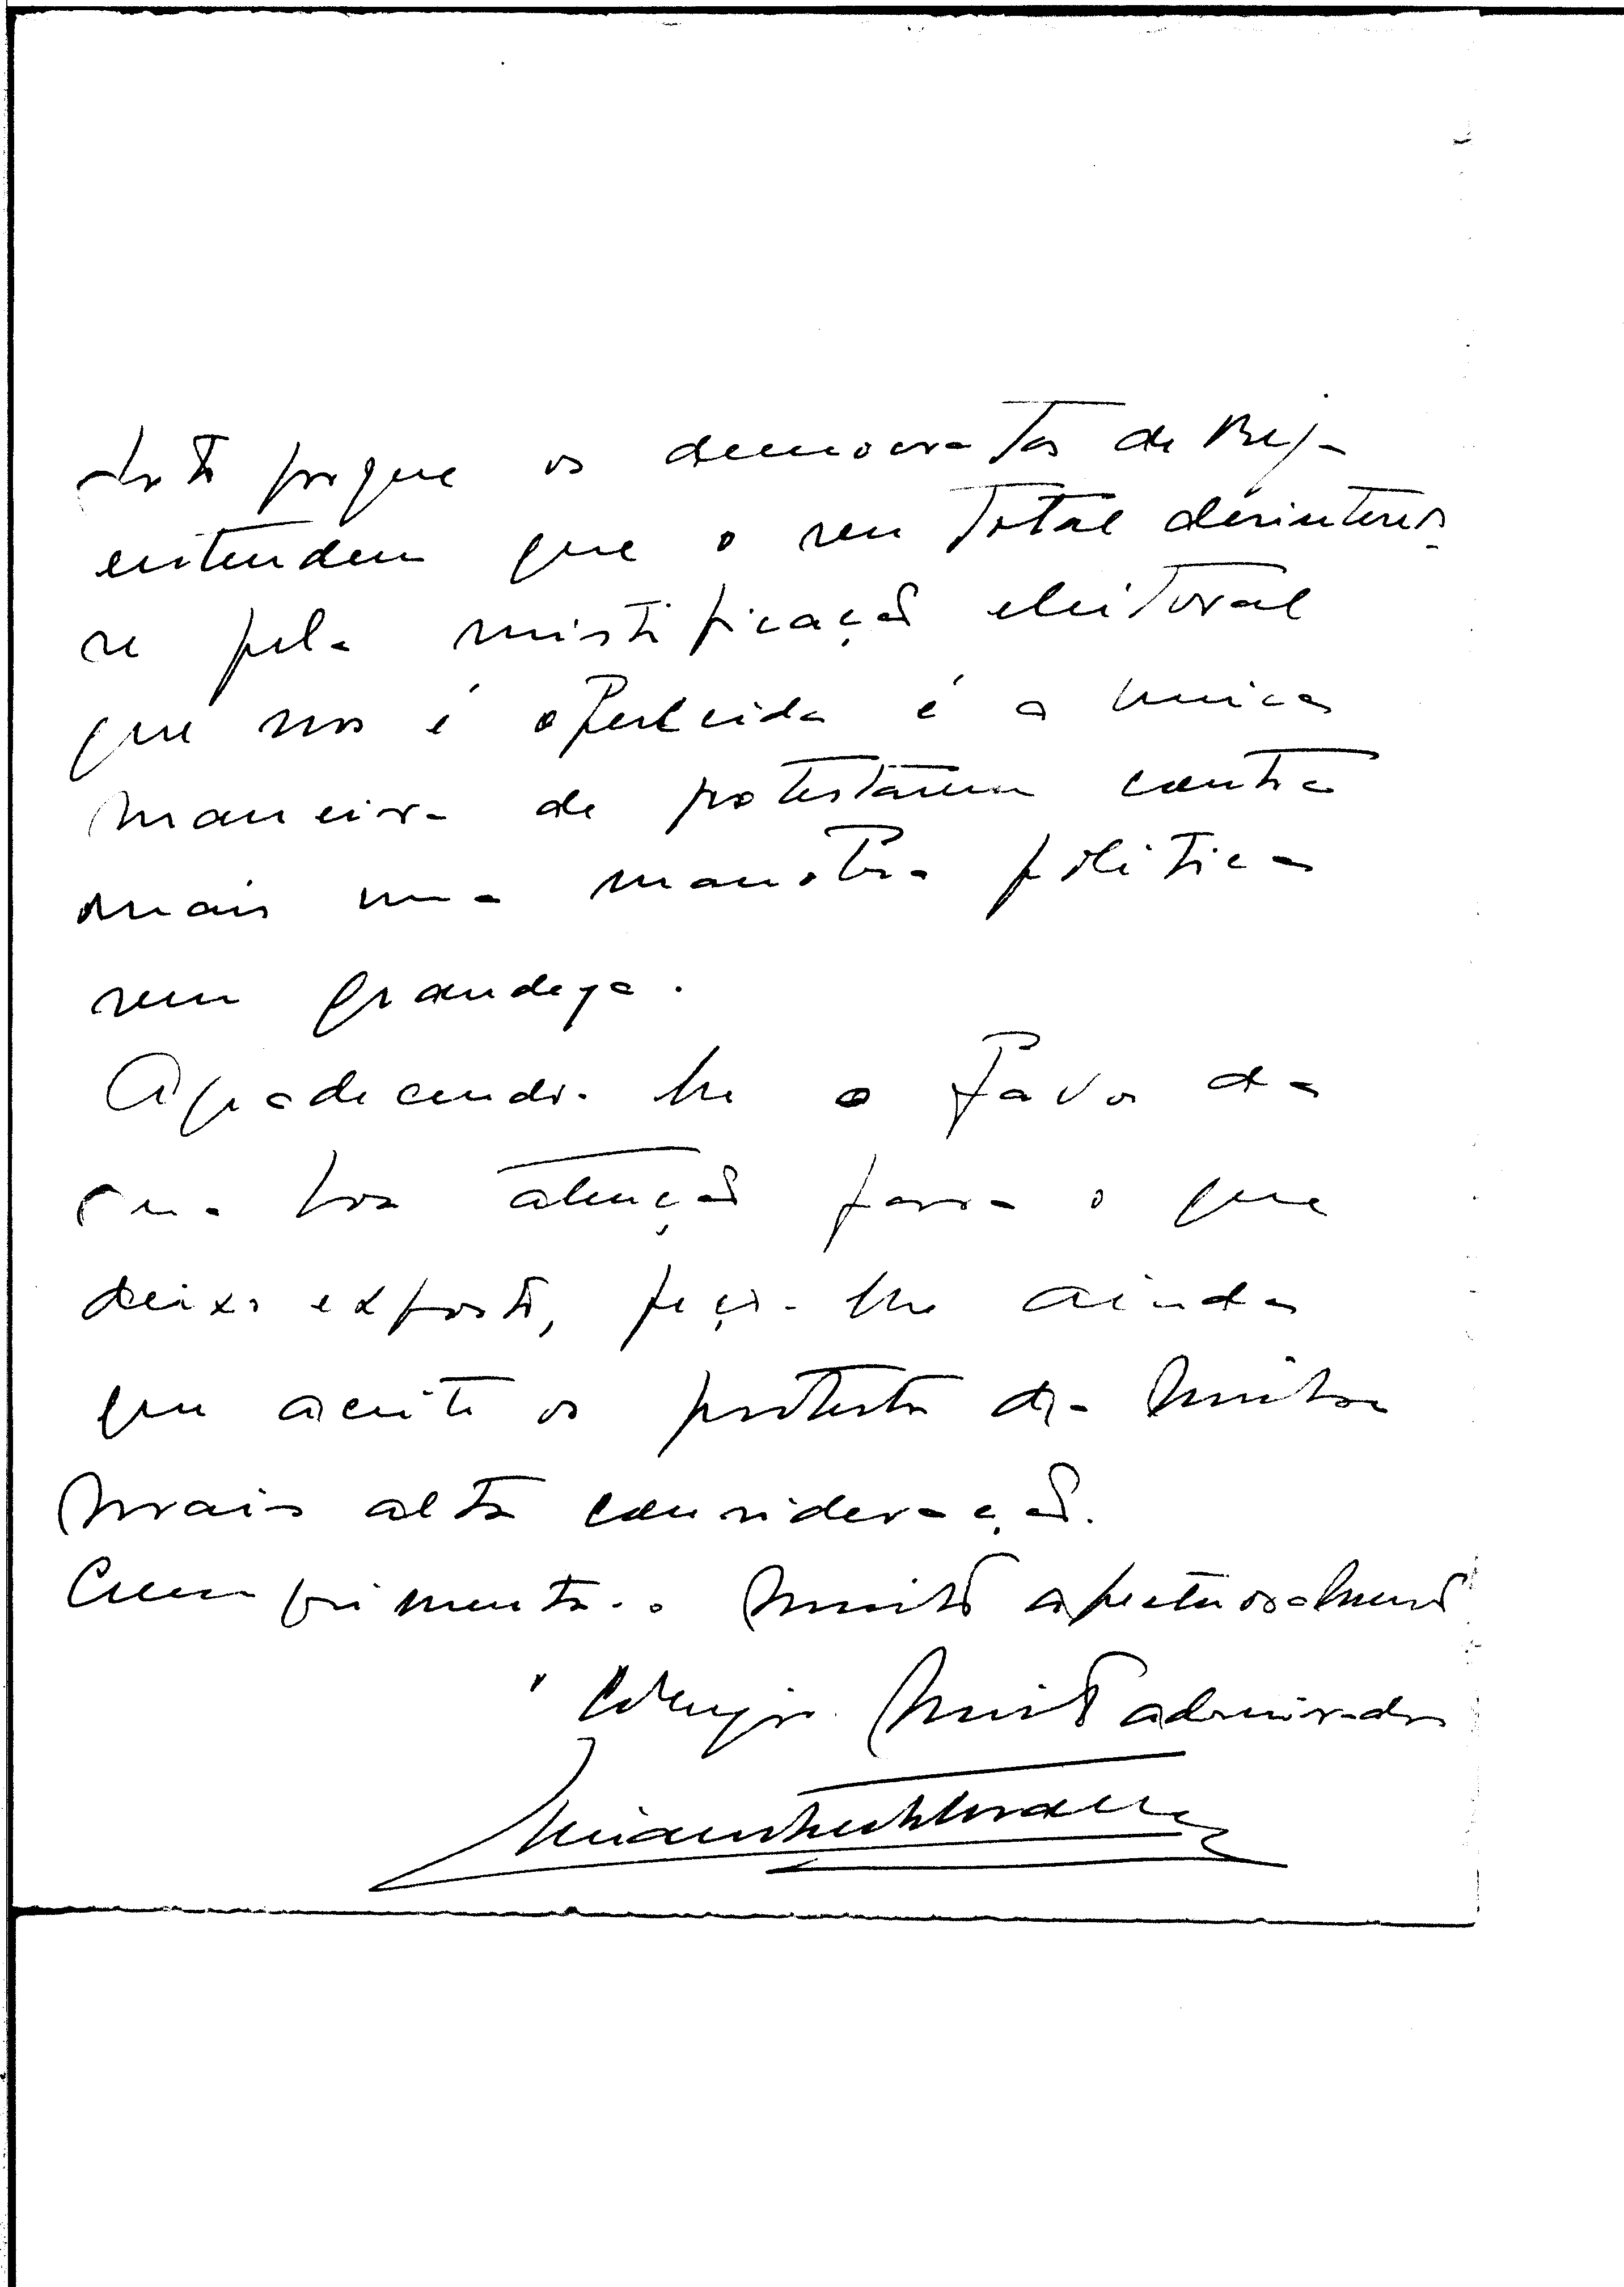 Isto porque os democratas de Beja
entendem que o seu total desinteres-
se pela mistificação eleitoral
que nos é oferecida é a unica
maneira de protestarem contra
mais uma manobra politica
sem grandeza.
Agradecendo-lhe o favor da
sua boa atenção para o que
deixo exposto, peço-lhe ainda
que aceite os protestos da minha
mais alta consideração.
Cumprimenta-o muito afectuosamente
colega muito admirador